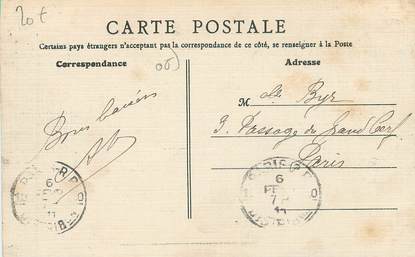 20€
CARTE POSTALE
Certains pays étrangers n'acceptant pas la correspondance de ce côté, se renseigner à la Poste
Correspondance
(06)
Adresse
Bons baisers
M elle Byr
3, Passage du Grand Cerf
Paris
PARIS
6